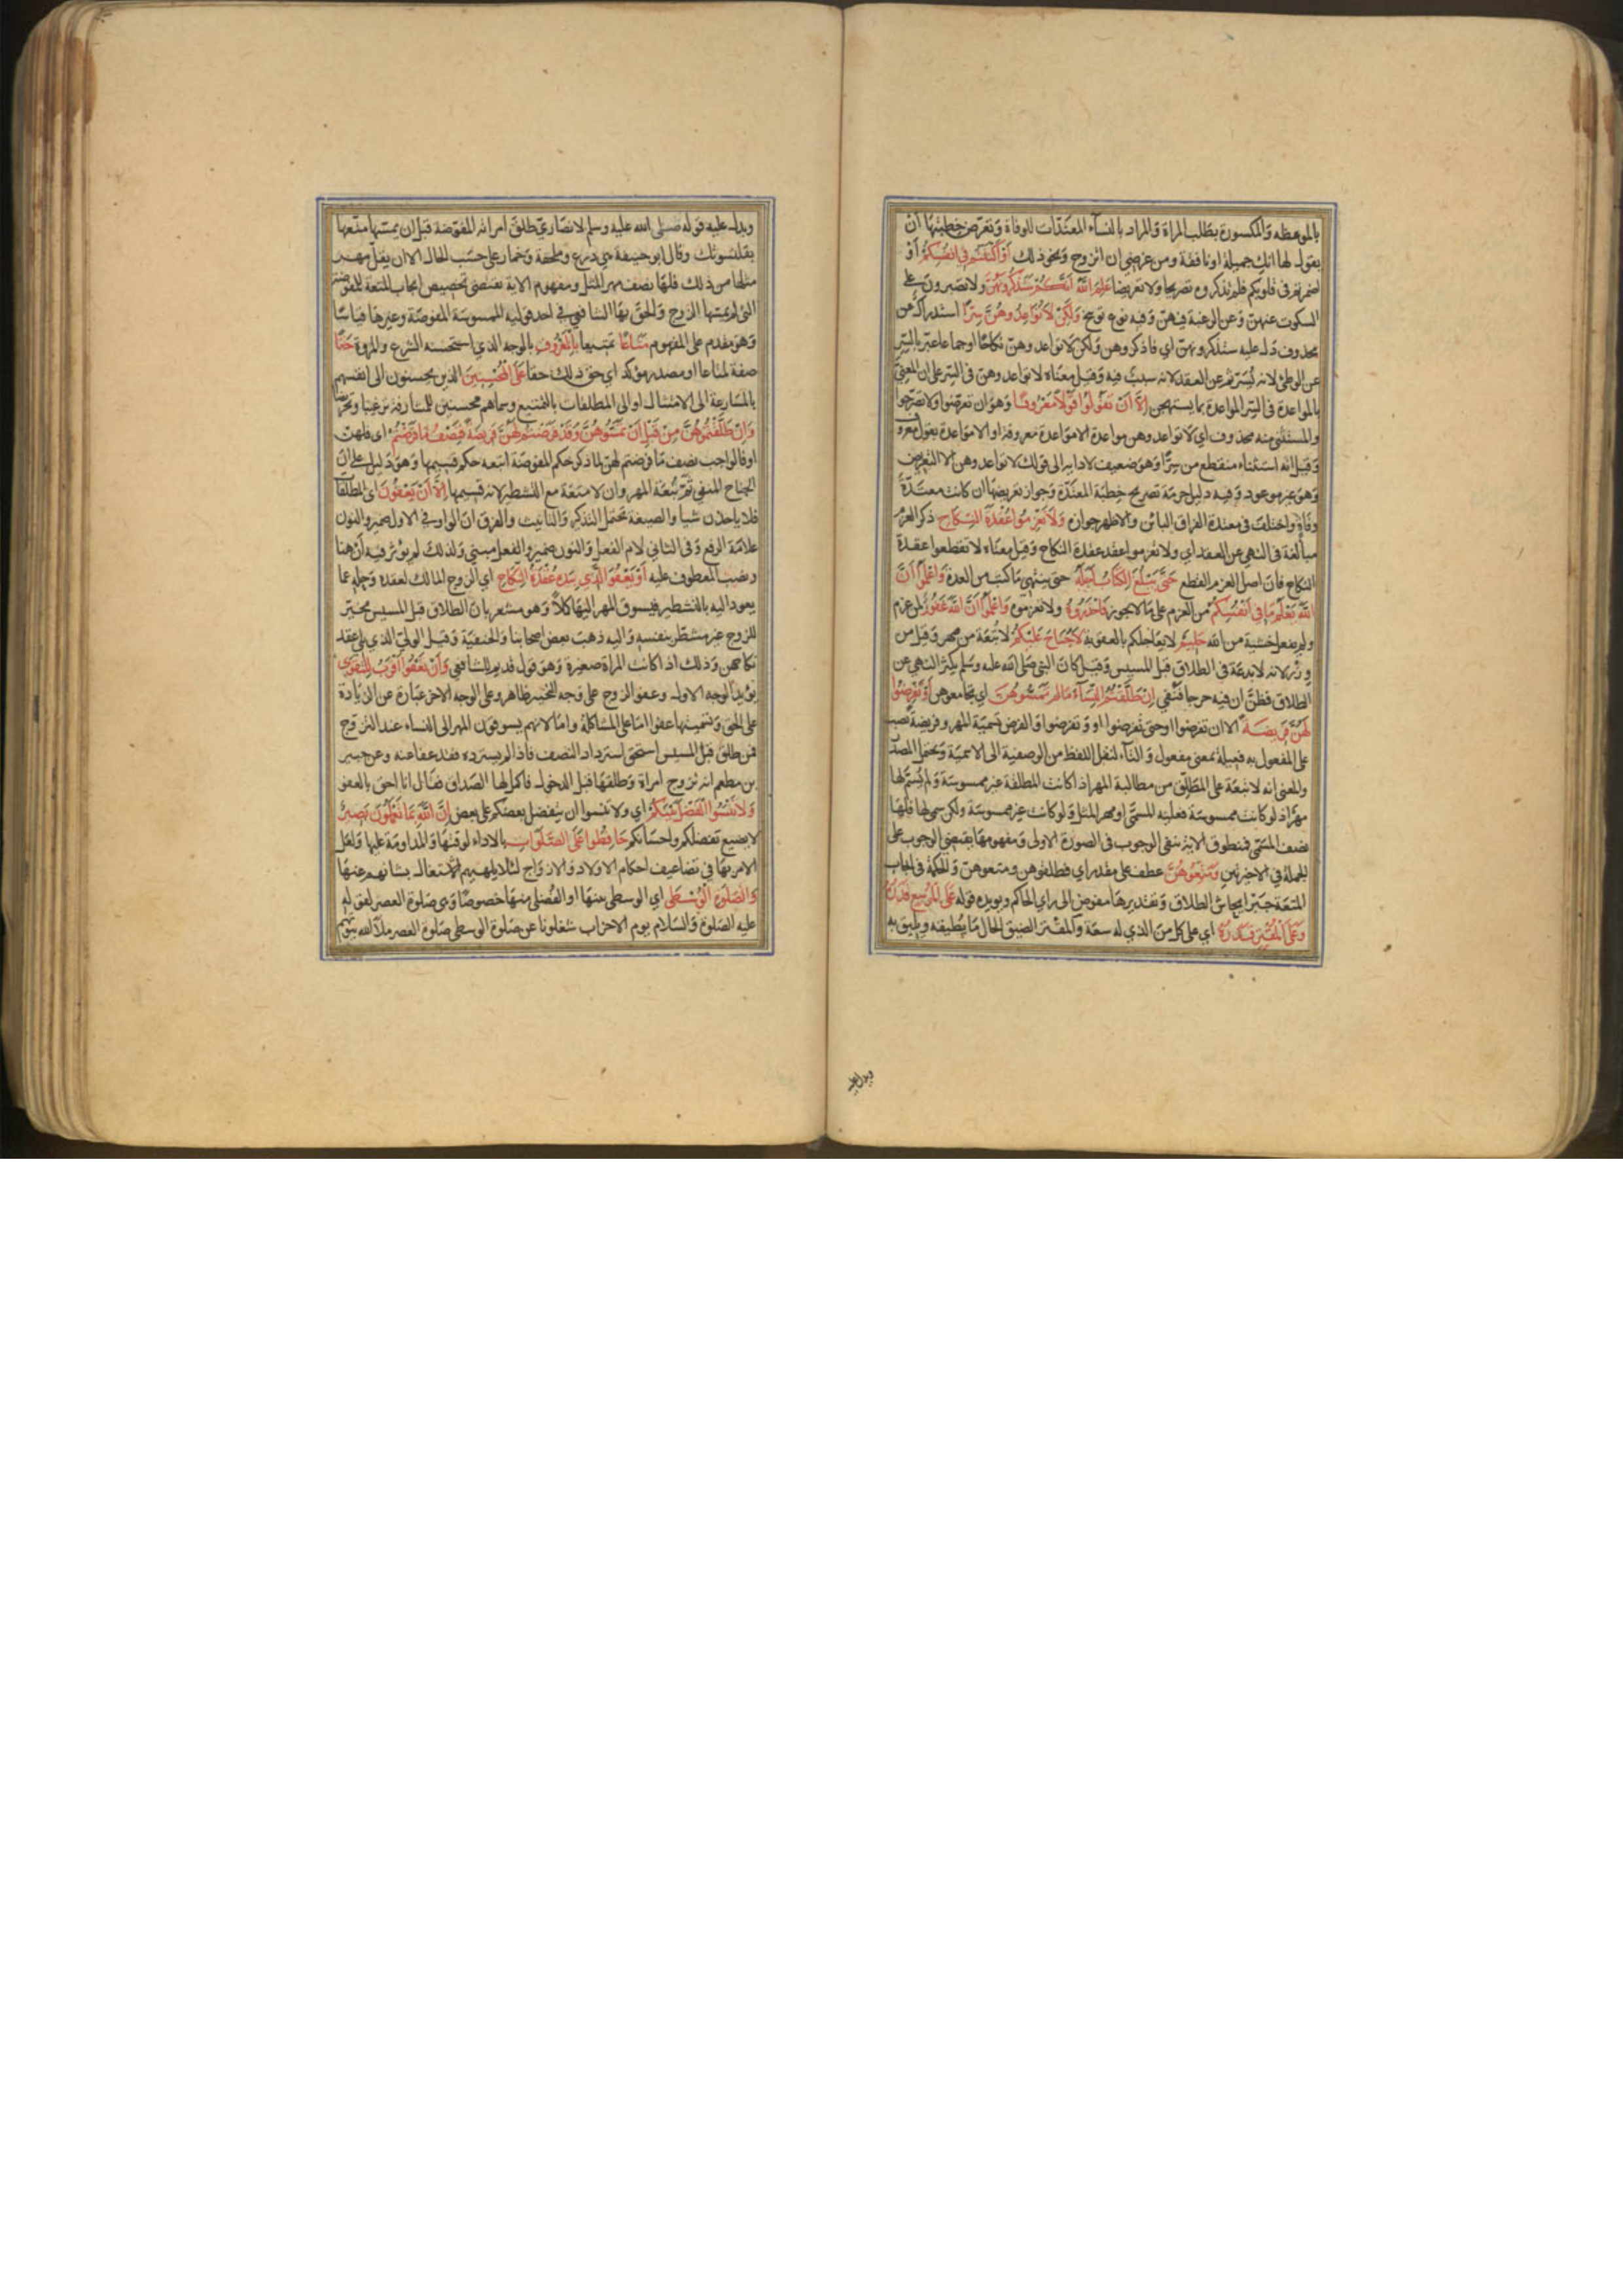 بالموعظه والمكسورة بطلب المراة والمراد بالنسآء المعتدات للوفاة وتعريض خطبتها ان
يقول لها انك جميلة او نافقة ومن غرضي ان اتزوج ونحو ذلك أَوْ أَكْنَنْتُمْ فِي أَنْفُسِكُمْ أو
اضمرتم في قلوبكم فلم تذكروه تصريحا ولا تعريضا عَلِمَ اللَّهُ أَنَّكُمْ سَتَذْكُرُونَهُنَّ ولا تصبرون على
السكوت عنهن وعن الرغبة فيهن وفيه نوع توبيخ وَلَكِنْ لَا تُوَاعِدُوهُنَّ سِرًّا استدراك عن
محذوف دل عليه ستذكرونهن اي فاذكروهن ولكن لا تواعدوهن نكاحا او جماعا عبر بالسر
عن الوطئ لانه يُسَرّ ثم عن العقد لانه سبب فيه وقيل معناه لا تواعدوهن في السر على ان المعنيّ
بالمواعدة في السر المواعدة بما يستهجن إِلَّا أَنْ تَقُولُوا قَوْلًا مَعْرُوفًا وهو ان تعرضوا ولا تصرحوا
والمستثنى منه محذوف اي لا تواعدوهن مواعدة الا مواعدة معروفة او الا مواعدة بقول معروف
وقيل انه استثناء منقطع من سِرًّا وهو ضعيف لادايه الى قولك لا تواعدوهن الا التعريض
وهو غير موعود وفيه دليل حرمة تصريح خطبة المعتدّة وجواز تعريضها ان كانت معتدّة
وفاة واختلف في معتدة الفراق البائن والاظهر جوازه وَلَا تَعْزِمُوا عُقْدَةَ النِّكَاحِ ذكر العزم
مبالغة في النهي عن العقد اي ولا تعزموا عقد عقدة النكاح وقيل معناه لا تقطعوا عقدة
النكاح فان اصل العزم القطع حَتَّى يَبْلُغَ الْكِتَابُ أَجَلَهُ حتى ينتهي ما كتب من العدة وَاعْلَمُوا أَنَّ
اللَّهَ يَعْلَمُ مَا فِي أَنْفُسِكُمْ من العزم على ما لا يجوز فَاحْذَرُوهُ ولا تعزموه وَاعْلَمُوا أَنَّ اللَّهَ غَفُورٌ لمن عزم
ولم يفعل خشية من الله حَلِيمٌ لا يعاجلكم بالعقوبة لَا جُنَاحَ عَلَيْكُمْ لا تبعة من مهر وقيل من
وزر لانه لا بدعة في الطلاق قبل المسيس وقيل كان النبي صلى الله عليه وسلم يكثر النهي عن
الطلاق فظن ان فيه حرجا فنفي إِنْ طَلَّقْتُمُ النِّسَاءَ مَا لَمْ تَمَسُّوهُنَّ اي تجامعوهن أَوْ تَفْرِضُوا
لَهُنَّ فَرِيضَةً الا ان تفرضوا او حتى تفرضوا او وتفرضوا والفرض تسمية المهر وفريضة نصب
على المفعول به فعيلة بمعنى مفعول والتآء لنقل اللفظ من الوصفية الى الاسمية ويحتمل المصدر
والمعنى انه لا تبعة على المطلّق من مطالبة المهر اذا كانت المطلقة غير ممسوسة ولم يُسَمّ لها
مهرا اذ لو كانت ممسوسة فعليه المسمّى او مهر المثل ولو كانت غير ممسوسة ولكن سمى لها فلها
نصف المسمّى فمنطوق الاية ينفي الوجوب في الصورة الاولى ومفهومها يقتضي الوجوب على
الجملة في الاخيرتين وَمَتِّعُوهُنَّ عطف على مقدر اي فطلقوهن ومتعوهن والحكمة في ايجاب
المتعة جبر ايحاش الطلاق وتقديرها مفوض الى راي الحاكم ويويده قوله عَلَى الْمُوسِعِ قَدَرُهُ
وَعَلَى الْمُقْتِرِ قَدَرُهُ اي على كل من الذي له سعة والمقتر الضيق الحال ما يُطيقه ويليق به
ويدل عليه
ويدل عليه قوله صلى الله عليه وسلم لانصاري طلق امراته المفوّضة قبل ان يمسّها متّعها
بقلنسوتك وقال ابو حنيفة هي درع وملحفة وخمار على حسب الحال الا ان يقلّ مهر
مثلها من ذلك فلها نصف مهر المثل ومفهوم الاية يقتضي تخصيص ايجاب المتعة للمفوضة
التي لم يمسّها الزوج والحق بها الشافعي في احد قوليه الممسوسة المفوضة وغيرها قياسا
وهو مقدم على المفهوم مَتَاعًا تمتيعا بِالْمَعْرُوفِ بالوجه الذي استحسنه الشرع والمروة حَقًّا
صفة لمتاعا او مصدر موكد اي حق ذلك حقا عَلَى الْمُحْسِنِينَ الذين يحسنون الى انفسهم
بالمسارعة الى الامتثال او الى المطلقات بالتمتيع وسماهم محسنين للمشارفة ترغيبا وتحريضا
وَإِنْ طَلَّقْتُمُوهُنَّ مِنْ قَبْلِ أَنْ تَمَسُّوهُنَّ وَقَدْ فَرَضْتُمْ لَهُنَّ فَرِيضَةً فَنِصْفُ مَا فَرَضْتُمْ اي فلهن
او فالواجب نصف ما فرضتم لهن لما ذكر حكم المفوضة اتبعه حكم قسيمها وهو دليل على ان
الجناح المنفي ثَمّ تبعة المهر وان لا متعة مع التشطير لانه قسيمها إِلَّا أَنْ يَعْفُونَ اي المطلقات
فلا ياخذن شيا والصيغة تحتمل التذكير والتانيث والفرق ان الواو في الاول ضمير والنون
علامة الرفع وفي الثاني لام الفعل والنون ضمير والفعل مبني ولذلك لم يؤثر فيه ان هنا
ونصب المعطوف عليه أَوْ يَعْفُوَ الَّذِي بِيَدِهِ عُقْدَةُ النِّكَاحِ اي الزوج المالك لعقده وحله عما
يعود اليه بالتشطير فيسوق المهر اليها كلا وهو مشعر بان الطلاق قبل المسيس مخيّر
للزوج غير مشطّر بنفسه واليه ذهب بعض اصحابنا والحنفية وقيل الولي الذي يلي عقد
نكاحهن وذلك اذا كانت المراة صغيرة وهو قول قديم للشافعي وَأَنْ تَعْفُوا أَقْرَبُ لِلتَّقْوَى
يؤيد الوجه الاول وعفو الزوج على وجه التخيير ظاهر وعلى الوجه الاخر عبارة عن الزيادة
على الحق وتسميتها عفوا اما على المشاكلة واما لانهم يسوقون المهر الى النساء عند التزوج
فمن طلق قبل المسيس استحق استرداد النصف فاذا لم يسترده فقد عفا عنه وعن جبير
بن مطعم انه تزوج امراة وطلقها قبل الدخول فاكمل لها الصداق فقال انا احق بالعفو
وَلَا تَنْسَوُا الْفَضْلَ بَيْنَكُمْ اي ولا تنسوا ان يتفضل بعضكم على بعض إِنَّ اللَّهَ بِمَا تَعْمَلُونَ بَصِيرٌ
لا يضيع تفضلكم واحسانكم حَافِظُوا عَلَى الصَّلَوَاتِ بالاداء لوقتها والمداومة عليها ولعل
الامر بها في تضاعيف احكام الاولاد والازواج لئلا يلهيهم الاشتغال بشانهم عنها
وَالصَّلَوةِ الْوُسْطَى اي الوسطى بينها او الفضلى منها خصوصا وهى صلوة العصر لقوله
عليه الصلوة والسلام يوم الاحزاب شغلونا عن صلوة الوسطى صلوة العصر ملأ الله بيوتهم